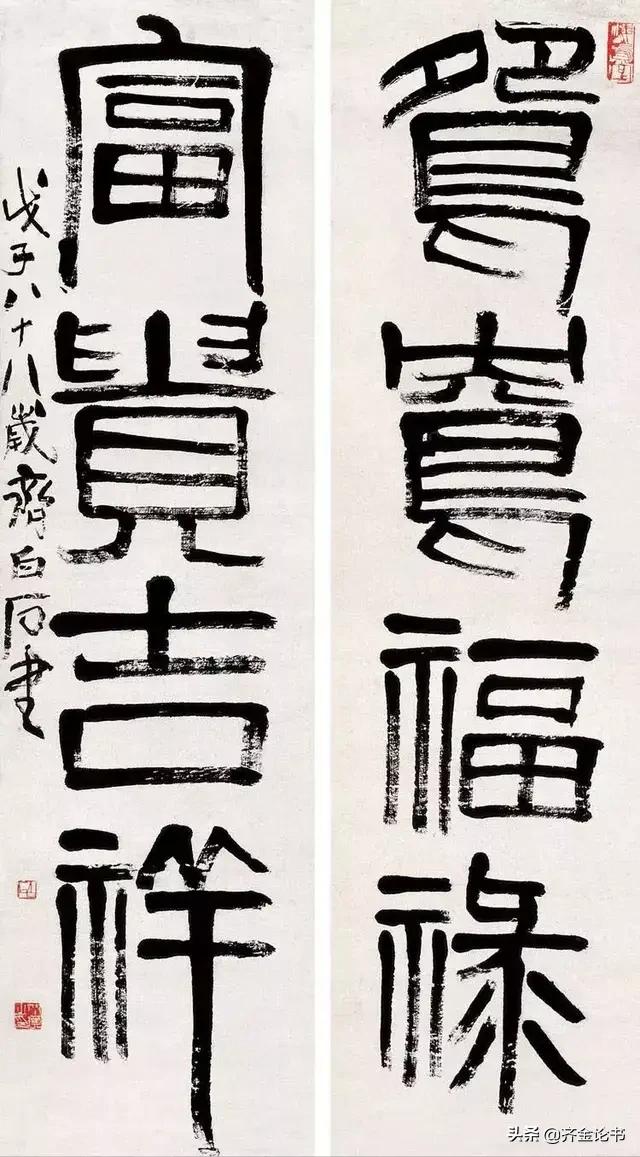 鴛鴦福祿
富貴吉祥
戊子八十八歲齊白石書
头条 @齐金论书